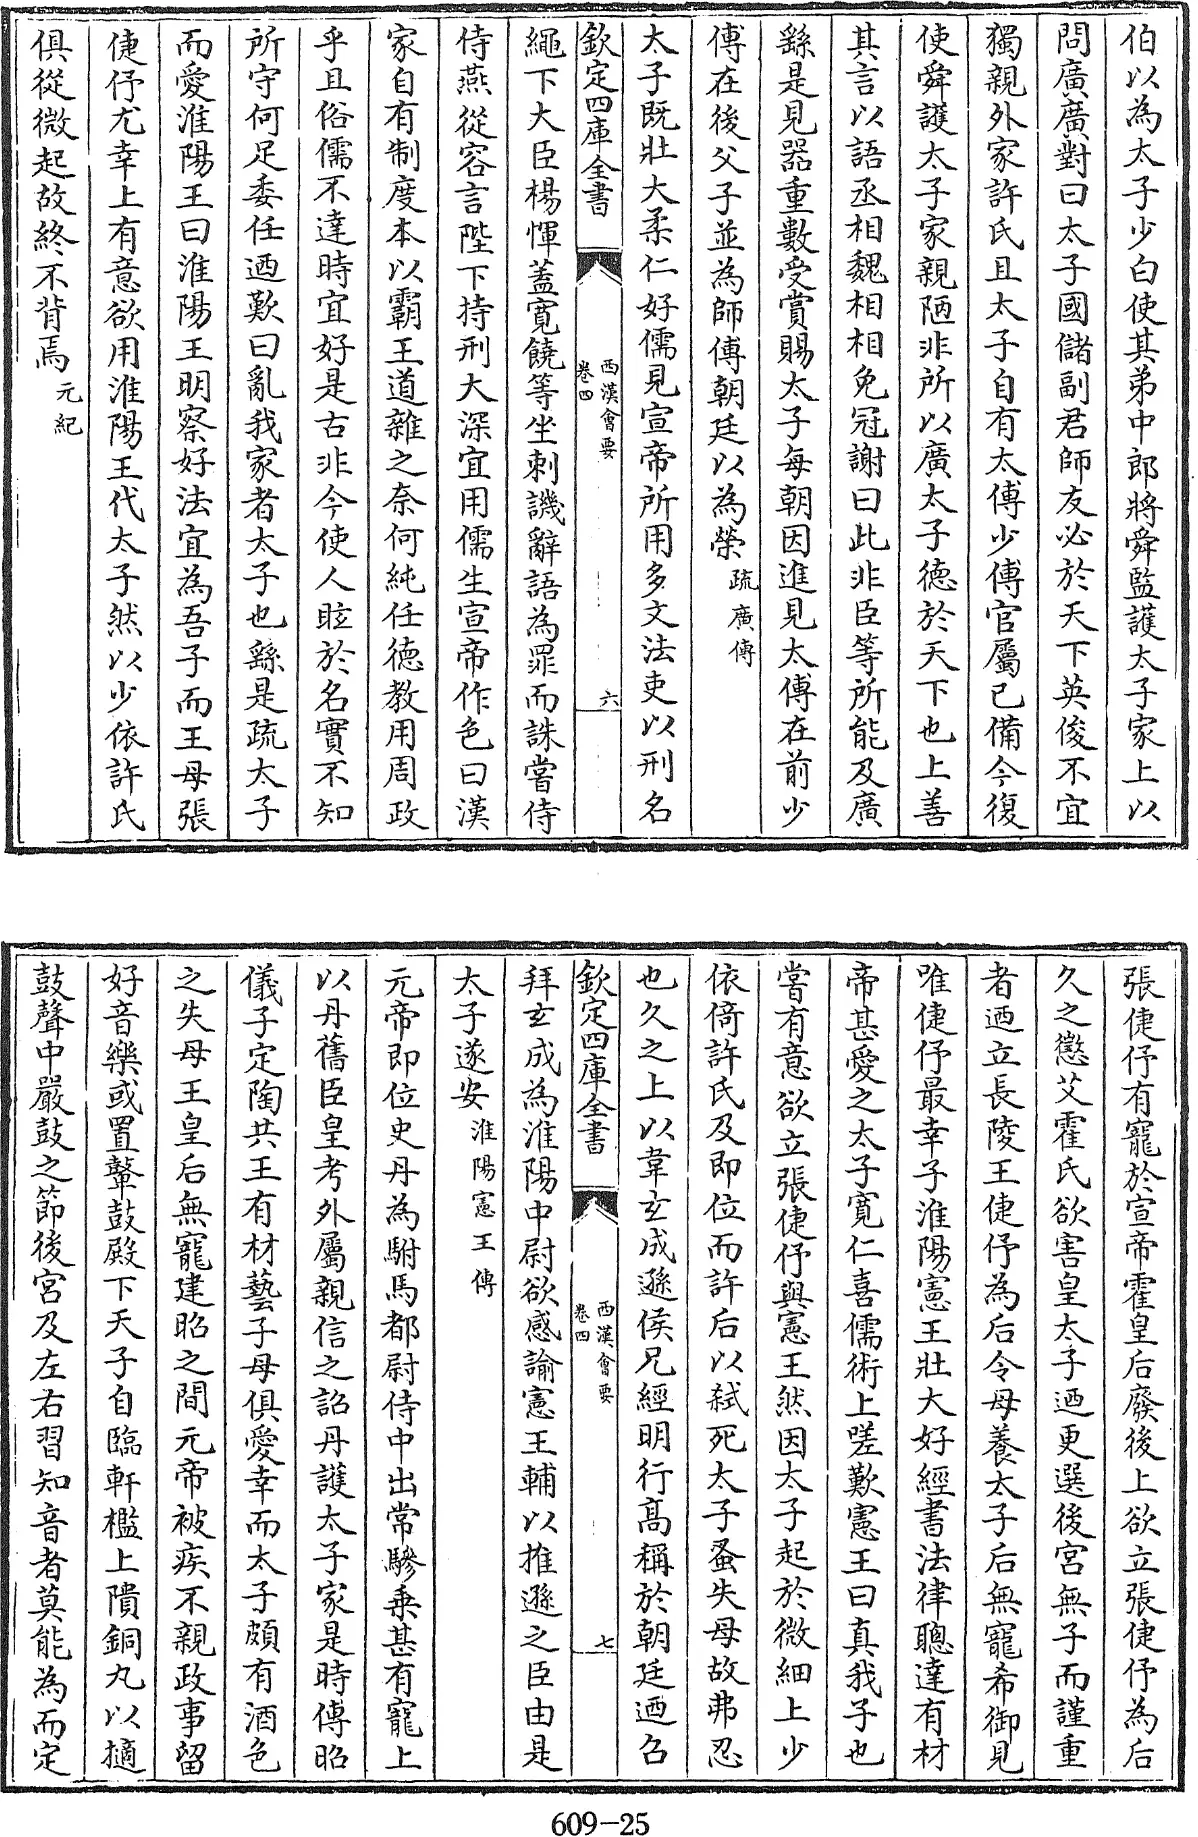 伯以為太子少白使其弟中郎將舜監護太子家上以
問廣廣對曰太子國儲副君師友必於天下英俊不宜
獨親外家許氏且太子自有太傅少傅官屬已備今復
使舜護太子家親陋非所以廣太子德於天下也上善
其言以語丞相魏相相免冠謝曰此非臣等所能及廣
繇是見器重數受賞賜太子每朝因進見太傅在前少
傅在後父子並為師傅朝廷以為榮疏廣傳
太子既壯大柔仁好儒見宣帝所用多文法吏以刑名
欽定四庫全書
西漢會要
卷四
六
繩下大臣楊惲蓋寬饒等坐刺譏辭語為罪而誅嘗侍
侍燕從容言陛下持刑大深宜用儒生宣帝作色曰漢
家自有制度本以霸王道雜之奈何純任德教用周政
乎且俗儒不達時宜好是古非今使人眩於名實不知
所守何足委任迺歎曰亂我家者太子也繇是疏太子
而愛淮陽王曰淮陽王明察好法宜為吾子而王母張
倢伃尤幸上有意欲用淮陽王代太子然以少依許氏
俱從微起故終不背焉元紀
張倢伃有寵於宣帝霍皇后廢後上欲立張倢伃為后
久之懲艾霍氏欲害皇太子迺更選後宮無子而謹重
者迺立長陵王倢伃為后令母養太子后無寵希御見
唯倢伃最幸子淮陽憲王壯大好經書法律聰達有材
帝甚愛之太子寬仁喜儒術上嗟歎憲王曰真我子也
嘗有意欲立張倢伃與憲王然因太子起於微細上少
依倚許氏及即位而許后以弒死太子蚤失母故弗忍
也久之上以韋玄成遜侯兄經明行高稱於朝廷迺召
欽定四庫全書
西漢會要
卷四
七
拜玄成為淮陽中尉欲感諭憲王輔以推遜之臣由是
太子遂安淮陽憲王傳
元帝即位史丹為駙馬都尉侍中出常驂乘甚有寵上
以丹舊臣皇考外屬親信之詔丹護太子家是時傅昭
儀子定陶共王有材藝子母俱愛幸而太子頗有酒色
之失母王皇后無寵建昭之間元帝被疾不親政事留
好音樂或置鼙鼓殿下天子自臨軒檻上隤銅丸以擿
鼓聲中嚴鼓之節後宮及左右習知音者莫能為而定
609-25